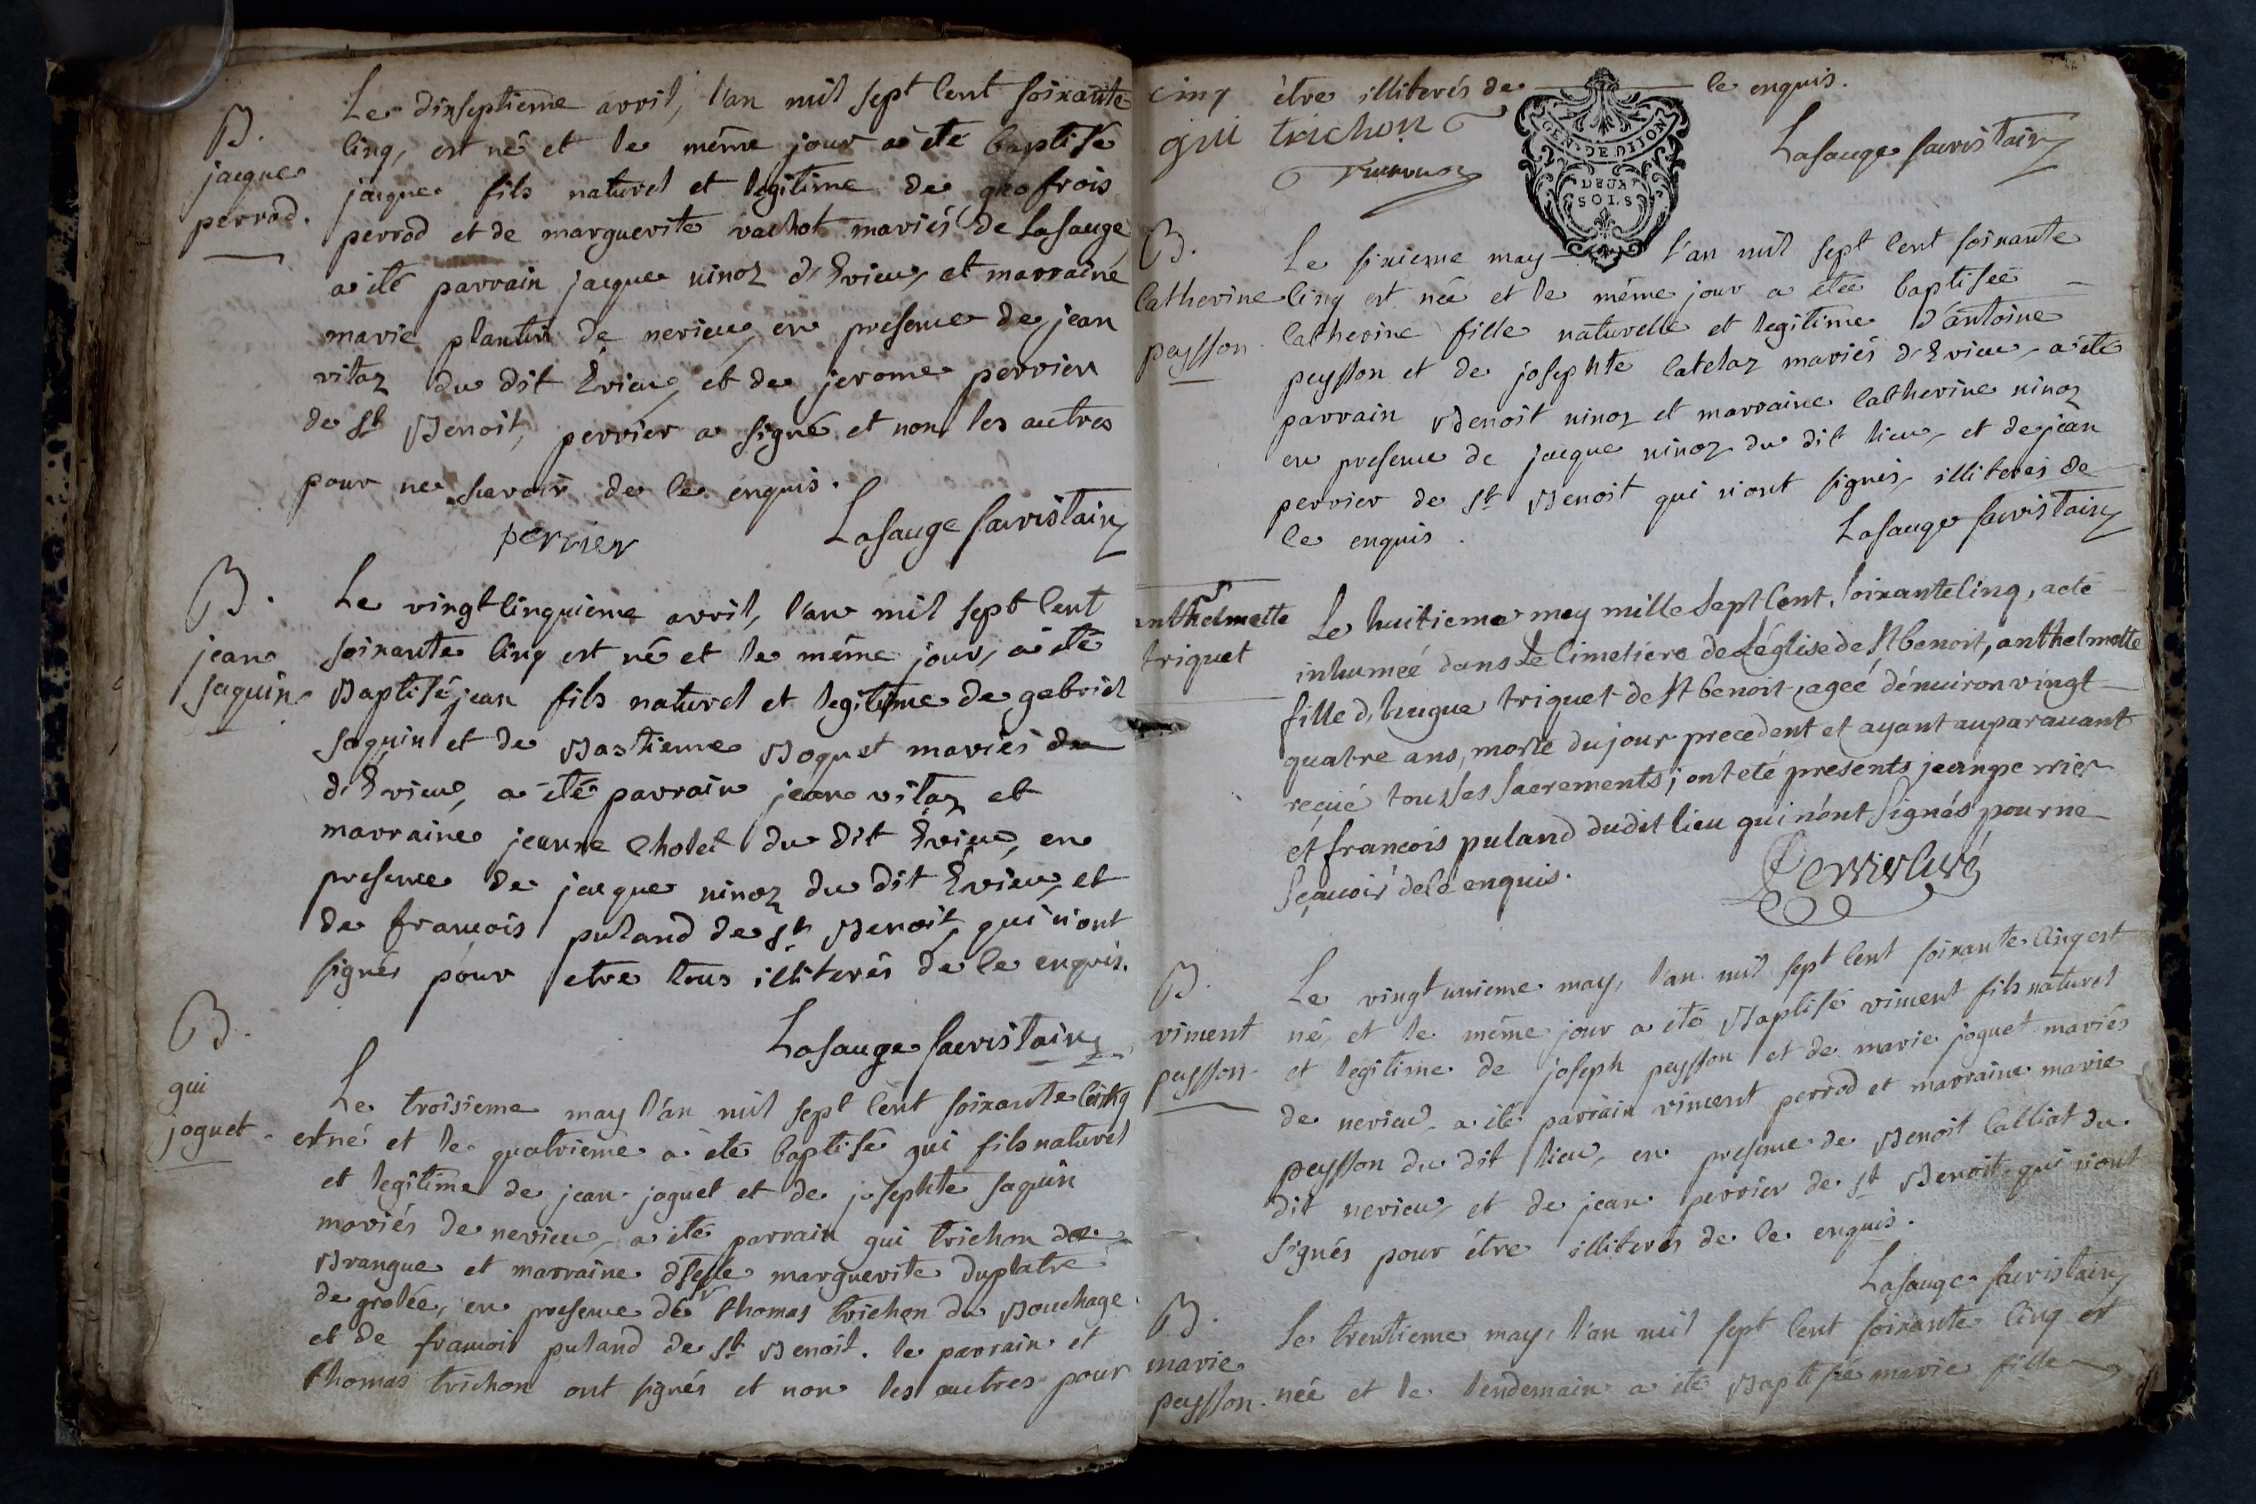 B.
jacque
perrod.
Le dixseptieme avril, l'an mil sept cent soixante
cinq, est né et le même jour a été baptisé
jacque fils naturel et legitime de geofrois
perrod et de marguerite vachot mariés de Lasauge
a été parrain jacque ninoz d'Evieu, et marraine
marie plantin de nerieu, en presence de jean
vitaz du dit Evieu, et de jerome perrier
de St Benoit, perrier a signé et non les autres
pour ne scavoir de ce enquis.
perrier Lasauge sacristain
B.
jean
saquin.
Le vingt cinquieme avril, l'an mil sept cent
soixante cinq est né et le même jour, a été
Baptisé jean fils naturel et legitime de gabriel
saquin et de Bastienne Boquet mariés de
d'Evieu, a été parrain jean vitaz et
marraine jeanne Cholet du dit Evieu, en
presence de jacque ninoz du dit Evieu, et
de francois puland de St Benoit, qui n'ont
signés pour etre tous illiterés de ce enquis.
Lasauge sacristain
B.
gui
joguet.
Le troisieme may l'an mil sept cent soixante cinq
est né et le quatrieme a été baptisé gui fils naturel
et legitime de jean joguet et de josephte saquin
mariés de nerieu, a été parrain gui trichon de
Brangue et marraine marguerite duplatre
de grolée, en presence de thomas trichon du Bouchage
et de francois puland de St Benoit. le parrain et
thomas trichon ont signés et non les autres pour
être illiterés de ce enquis.
gui trichon
Lasauge sacristain
GEN. DE DIJON
DEUX
SOLS
B.
Catherine
peysson.
Le sixieme may l'an mil sept cent soixante
cinq est née et le même jour a étée baptisée
Catherine fille naturelle et legitime d'antoine
peysson et de josephte catelaz mariés d'Evieu, a été
parrain Benoit ninoz et marraine Catherine ninoz
en presence de jacque ninoz du dit lieu, et de jean
perrier de St Benoit qui n'ont signés, illiterés de
ce enquis.
Lasauge sacristain
anthelmette
triquet
Le huitieme may mille sept Cent, soixante cinq, a eté
inhumeé dans Le Cimetiere de Léglise de St benoit, anthelmette
fille d, hugue triquet de St benoit, ageé dénuiron vingt
quatre ans, morte du jour precedent et ayant auparauant
reçue tous les sacrements; ont eté presents jean perrier
et francois puland dudit lieu qui n'ónt signés pour ne
sçauoir de ce enquis.
Perrier Curé
B.
vincent
peysson.
Le vingt unieme may, l'an mil sept cent soixante cinq est
né, et le même jour a été Baptisé vincent fils naturel
et legitime de joseph peysson et de marie joguet mariés
de nerieu, a été parrain vincent perrod et marraine marie
peysson du dit lieu, en presence de Benoit Calliat du
dit nerieu, et de jean perrier de St Benoit qui n'ont
signés pour être illiterés de ce enquis.
Lasauge sacristain
B.
marie
peysson.
Le trentieme may, l'an mil sept cent soixante cinq est
née et le lendemain a été Baptisée marie fille